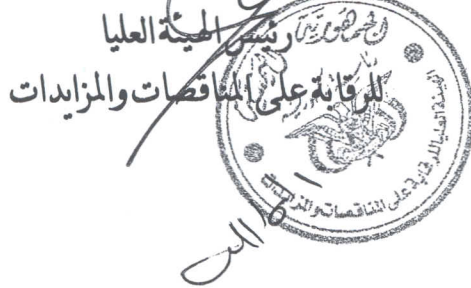 رئيس الهيئة العليا
للرقابة على المناقصات والمزايدات
الهيئة العليا للرقابة على المناقصات والمزايدات